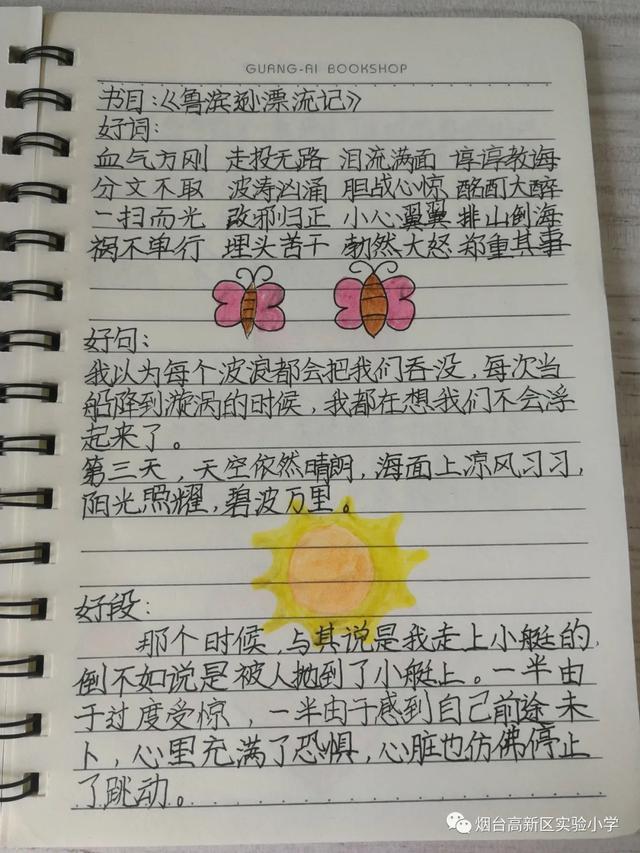 GUANG-AI BOOKSHOP
书目:《鲁滨逊漂流记》
好词:
血气方刚 走投无路 泪流满面 谆谆教诲
分文不取 波涛汹涌 胆战心惊 酩酊大醉
一扫而光 改邪归正 小心翼翼 排山倒海
祸不单行 埋头苦干 勃然大怒 郑重其事
好句:
我以为每个波浪都会把我们吞没,每次当
船降到漩涡的时候,我都在想我们不会浮
起来了。
第三天,天空依然晴朗,海面上凉风习习,
阳光照耀,碧波万里。
好段:
那个时候,与其说是我走上小艇的,
倒不如说是被人抛到了小艇上。一半由
于过度受惊,一半由于感到自己前途未
卜,心里充满了恐惧,心脏也仿佛停止
了跳动。
烟台高新区实验小学